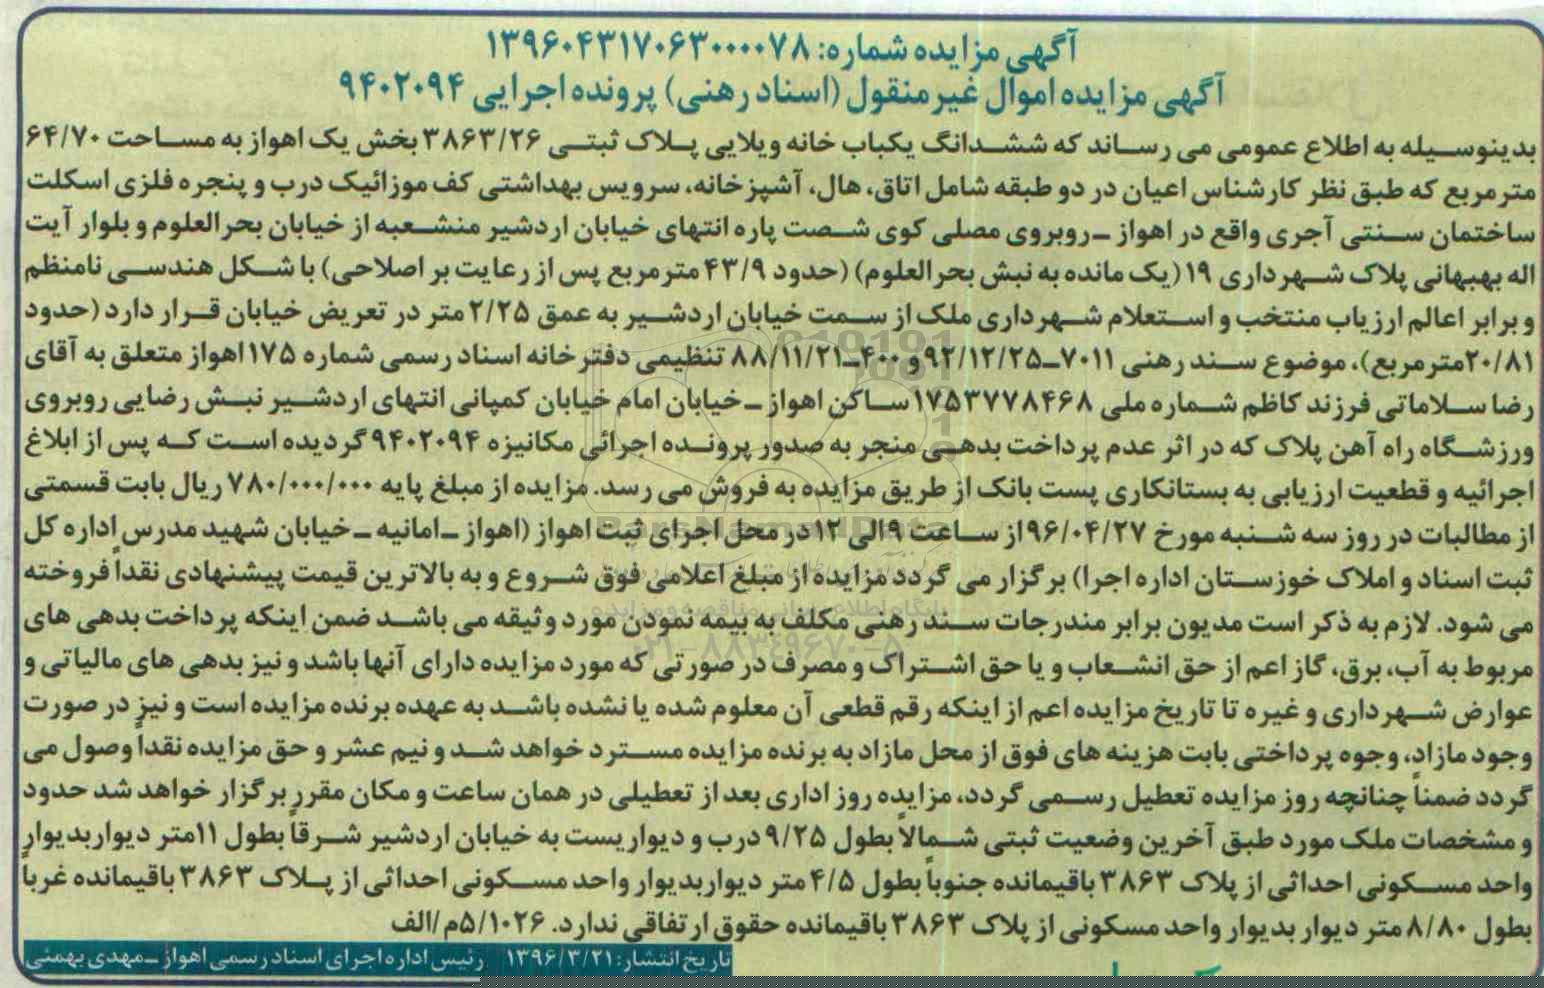 آگهی مزایده شماره: ۱۳۹۶۰۴۳۱۷۰۶۳۰۰۰۰۷۸
آگهی مزایده اموال غیرمنقول (اسناد رهنی) پرونده اجرایی ۹۴۰۲۰۹۴
بدینوسیله به اطلاع عمومی می رساند که ششدانگ یکباب خانه ویلایی پلاک ثبتی ۳۸۶۳/۲۶ بخش یک اهواز به مساحت ۶۴/۷۰
مترمربع که طبق نظر کارشناس اعیان در دو طبقه شامل اتاق، هال، آشپزخانه، سرویس بهداشتی کف موزائیک درب و پنجره فلزی اسکلت
ساختمان سنتی آجری واقع در اهواز ـ روبروی مصلی کوی شصت پاره انتهای خیابان اردشیر منشعبه از خیابان بحرالعلوم و بلوار آیت
اله بهبهانی پلاک شهرداری ۱۹ (یک مانده به نبش بحرالعلوم) (حدود ۴۳/۹ مترمربع پس از رعایت بر اصلاحی) با شکل هندسی نامنظم
و برابر اعالم ارزیاب منتخب و استعلام شهرداری ملک از سمت خیابان اردشیر به عمق ۲/۲۵ متر در تعریض خیابان قرار دارد (حدود
۲۰/۸۱مترمربع)، موضوع سند رهنی ۷۰۱۱ـ۹۲/۱۲/۲۵ و ۴۰۰ـ۸۸/۱۱/۲۱ تنظیمی دفترخانه اسناد رسمی شماره ۱۷۵اهواز متعلق به آقای
رضا سلاماتی فرزند کاظم شماره ملی ۱۷۵۳۷۷۸۴۶۸ساکن اهواز ـ خیابان امام خیابان کمپانی انتهای اردشیر نبش رضایی روبروی
ورزشگاه راه آهن پلاک که در اثر عدم پرداخت بدهی منجر به صدور پرونده اجرائی مکانیزه ۹۴۰۲۰۹۴گردیده است که پس از ابلاغ
اجرائیه و قطعیت ارزیابی به بستانکاری پست بانک از طریق مزایده به فروش می رسد. مزایده از مبلغ پایه ۷۸۰/۰۰۰/۰۰۰ ریال بابت قسمتی
از مطالبات در روز سه شنبه مورخ ۹۶/۰۴/۲۷ از ساعت ۹الی ۱۲ در محل اجرای ثبت اهواز (اهواز ـ امانیه ـ خیابان شهید مدرس اداره کل
ثبت اسناد و املاک خوزستان اداره اجرا) برگزار می گردد مزایده از مبلغ اعلامی فوق شروع و به بالاترین قیمت پیشنهادی نقداً فروخته
می شود. لازم به ذکر است مدیون برابر مندرجات سند رهنی مکلف به بیمه نمودن مورد وثیقه می باشد ضمن اینکه پرداخت بدهی های
مربوط به آب، برق، گاز اعم از حق انشعاب و یا حق اشتراک و مصرف در صورتی که مورد مزایده دارای آنها باشد و نیز بدهی های مالیاتی و
عوارض شهرداری و غیره تا تاریخ مزایده اعم از اینکه رقم قطعی آن معلوم شده یا نشده باشد به عهده برنده مزایده است و نیز در صورت
وجود مازاد، وجوه پرداختی بابت هزینه های فوق از محل مازاد به برنده مزایده مسترد خواهد شد و نیم عشر و حق مزایده نقداً وصول می
گردد ضمناً چنانچه روز مزایده تعطیل رسمی گردد، مزایده روز اداری بعد از تعطیلی در همان ساعت و مکان مقرر برگزار خواهد شد حدود
و مشخصات ملک مورد طبق آخرین وضعیت ثبتی شمالاً بطول ۹/۲۵ درب و دیواریست به خیابان اردشیر شرقاً بطول ۱۱متر دیواربدیوار
واحد مسکونی احداثی از پلاک ۳۸۶۳ باقیمانده جنوباً بطول ۴/۵ متر دیواربدیوار واحد مسکونی احداثی از پلاک ۳۸۶۳ باقیمانده غرباً
بطول ۸/۸۰ متر دیوار بدیوار واحد مسکونی از پلاک ۳۸۶۳ باقیمانده حقوق ارتفاقی ندارد. ۵/۱۰۲۶م/الف
تاریخ انتشار: ۱۳۹۶/۳/۲۱ رئیس اداره اجرای اسناد رسمی اهواز ـ مهدی بهمئی